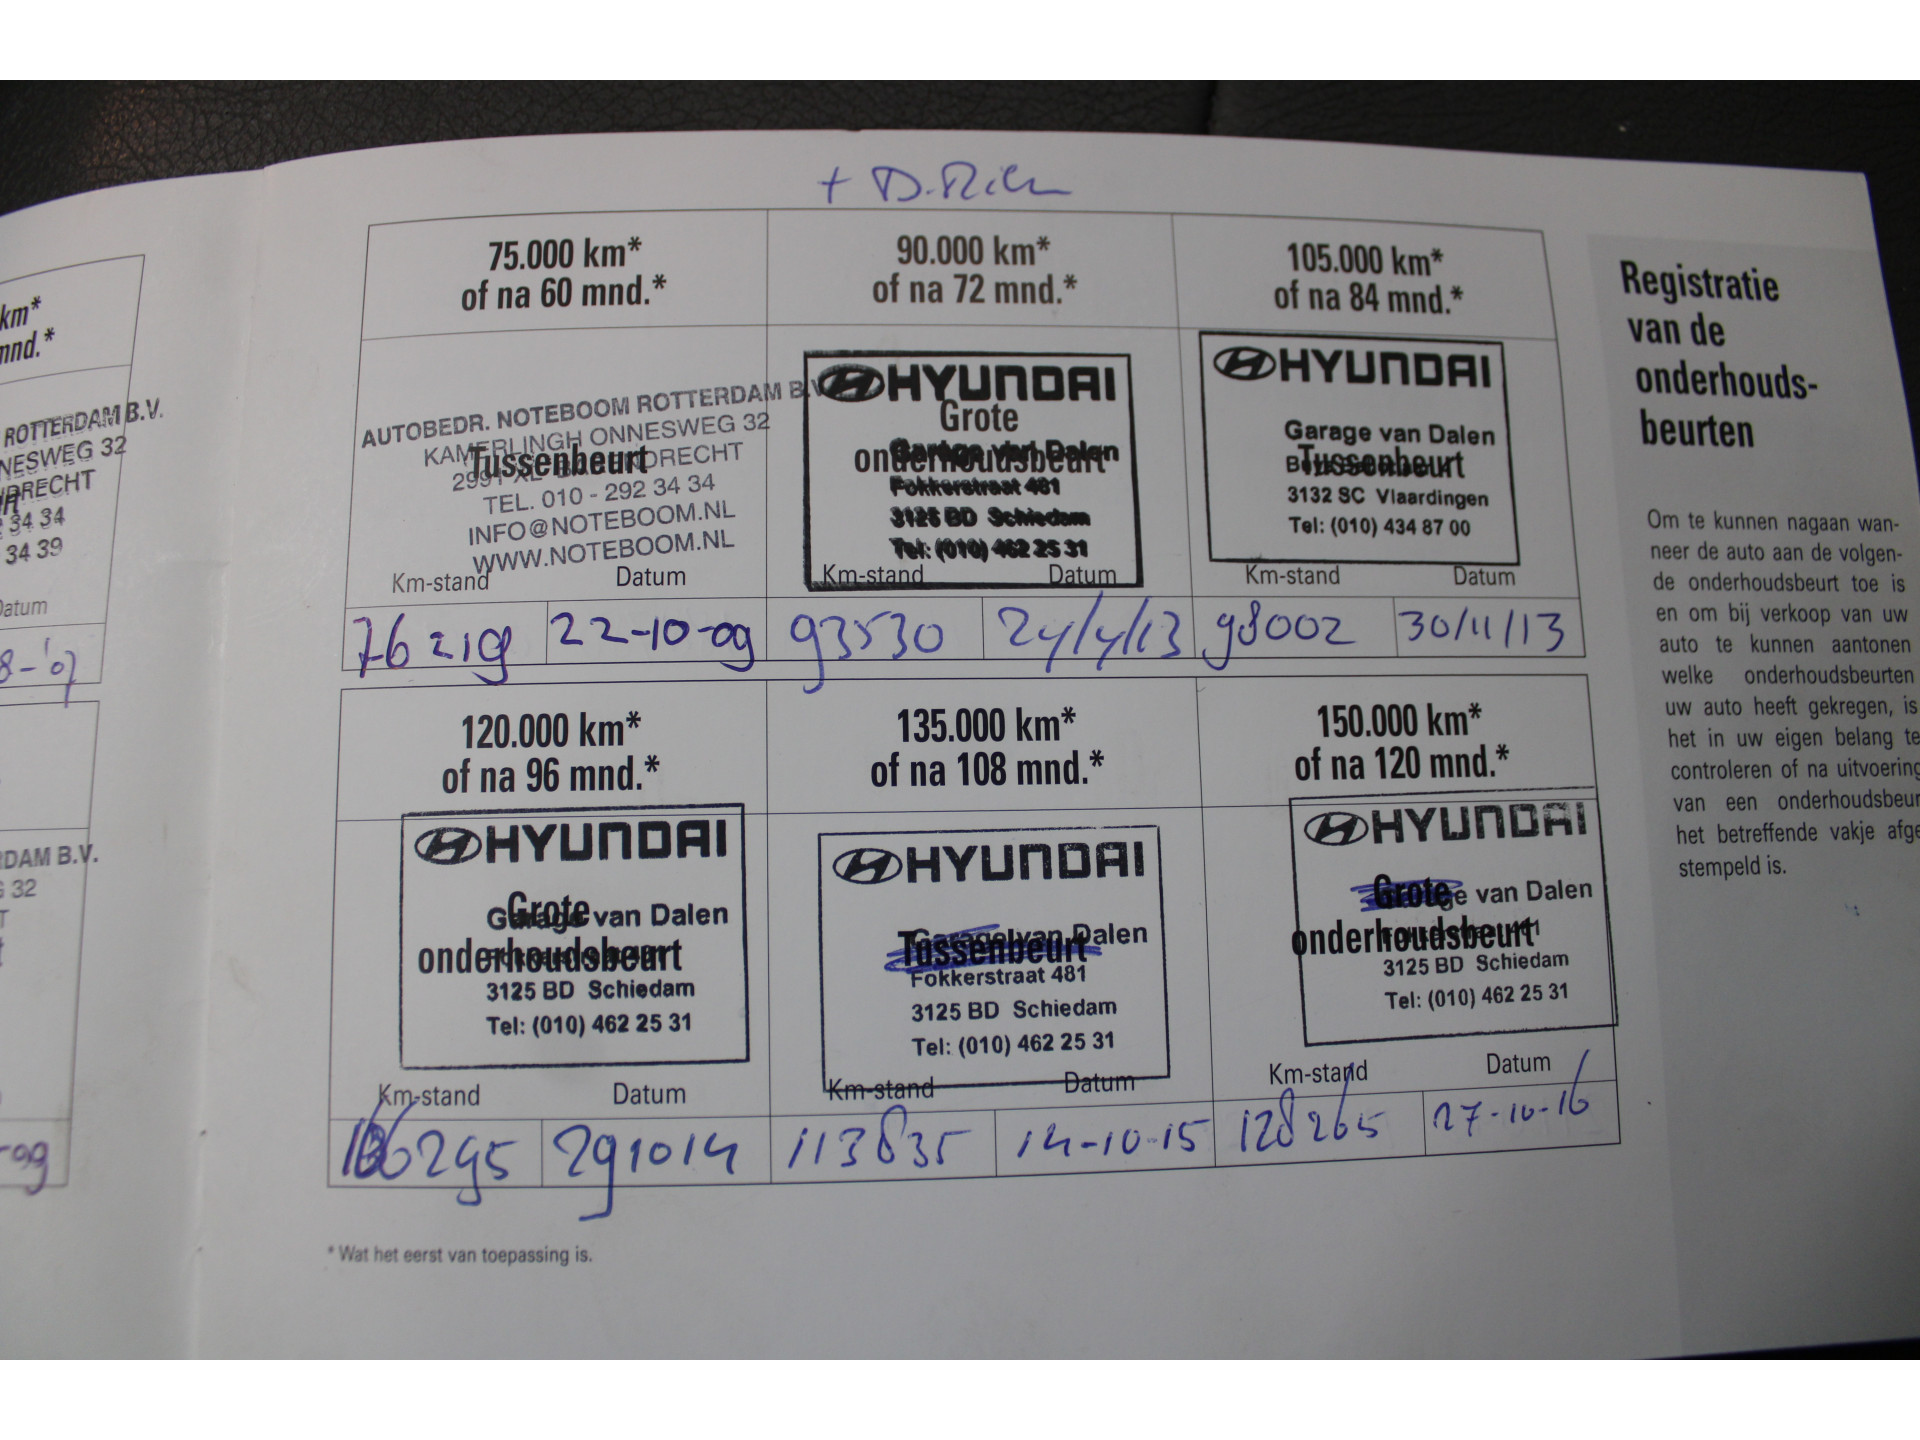 km*
mnd.*
ROTTERDAM B.V.
NNESWEG 32
DRECHT
34 34
34 39
Datum
8-'07
RDAM B.V.
G 32
T
-09
+ D.Riem
75.000 km*
of na 60 mnd.*
AUTOBEDR. NOTEBOOM ROTTERDAM B.V.
KAMERLINGH ONNESWEG 32
Tussenbeurt
2991 XL BARENDRECHT
TEL. 010 - 292 34 34
INFO@NOTEBOOM.NL
WWW.NOTEBOOM.NL
Km-stand Datum
76219 22-10-09
90.000 km*
of na 72 mnd.*
HYUNDAI
Grote
onderhoudsbeurt
Garage van Dalen
Fokkerstraat 481
3125 BD Schiedam
Tel: (010) 462 25 31
Km-stand Datum
93530 24/4/13
105.000 km*
of na 84 mnd.*
HYUNDAI
Garage van Dalen
Tussenbeurt
3132 SC Vlaardingen
Tel: (010) 434 87 00
Km-stand Datum
98002 30/11/13
120.000 km*
of na 96 mnd.*
HYUNDAI
Grote
Garage van Dalen
onderhoudsbeurt
3125 BD Schiedam
Tel: (010) 462 25 31
Km-stand Datum
106295 291014
135.000 km*
of na 108 mnd.*
HYUNDAI
Garage van Dalen
Tussenbeurt
Fokkerstraat 481
3125 BD Schiedam
Tel: (010) 462 25 31
Km-stand Datum
113835 14-10-15
150.000 km*
of na 120 mnd.*
HYUNDAI
Grote
Garage van Dalen
onderhoudsbeurt
3125 BD Schiedam
Tel: (010) 462 25 31
Km-stand Datum
128265 27-10-16
* Wat het eerst van toepassing is.
Registratie
van de
onderhouds-
beurten
Om te kunnen nagaan wan-
neer de auto aan de volgen-
de onderhoudsbeurt toe is
en om bij verkoop van uw
auto te kunnen aantonen
welke onderhoudsbeurten
uw auto heeft gekregen, is
het in uw eigen belang te
controleren of na uitvoering
van een onderhoudsbeur
het betreffende vakje afge
stempeld is.